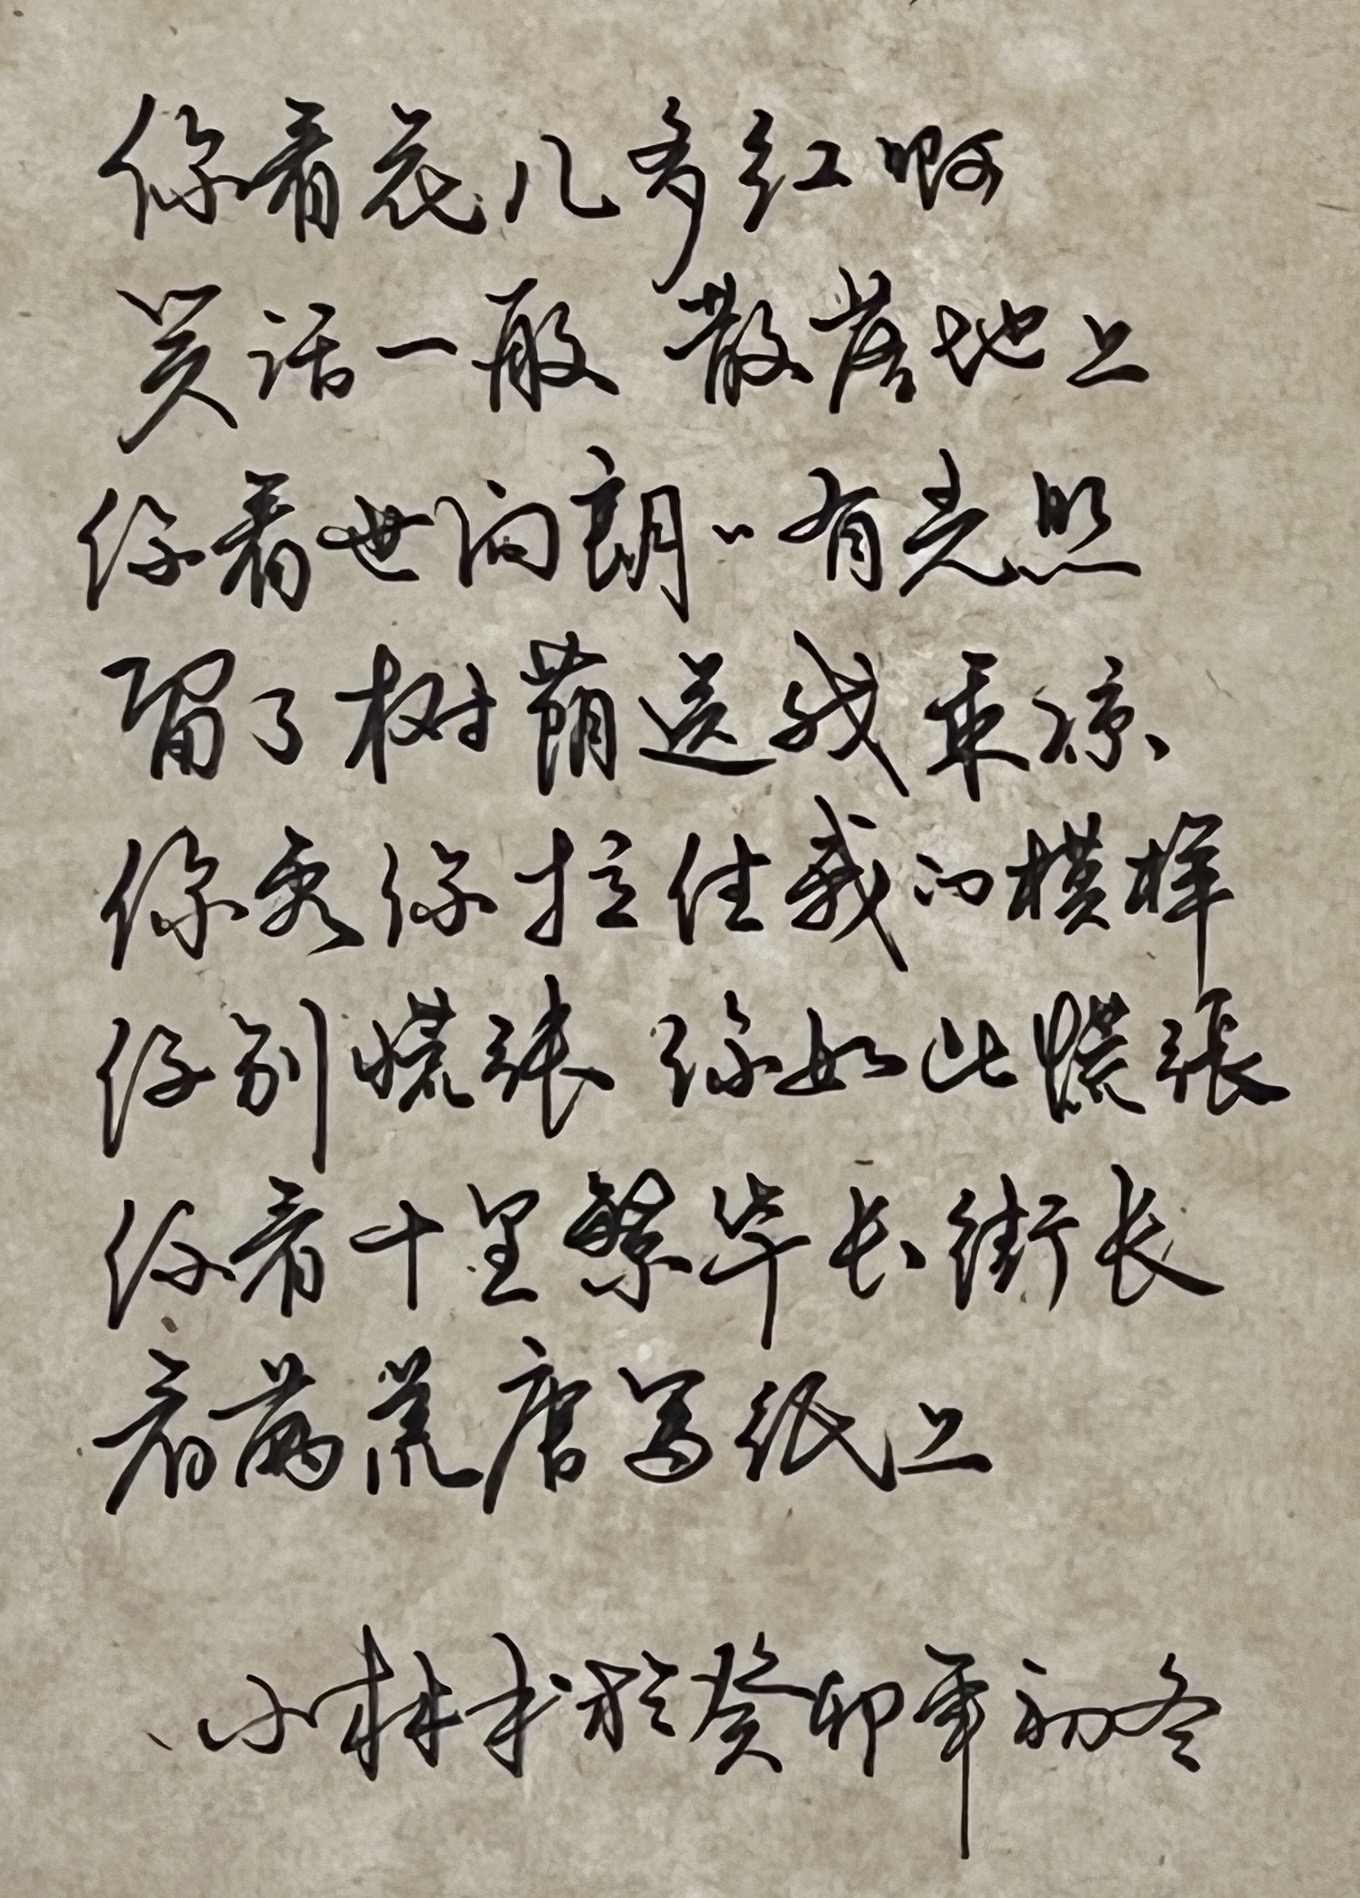 你看花儿多红啊
笑话一般 散落地上
你看世间朗朗有光照
留了树荫送我乘凉
你爱你拉住我的模样
你别慌张 你如此慌张
你看十里繁华长街长
看满荒唐写纸上
小林书於癸卯年初冬